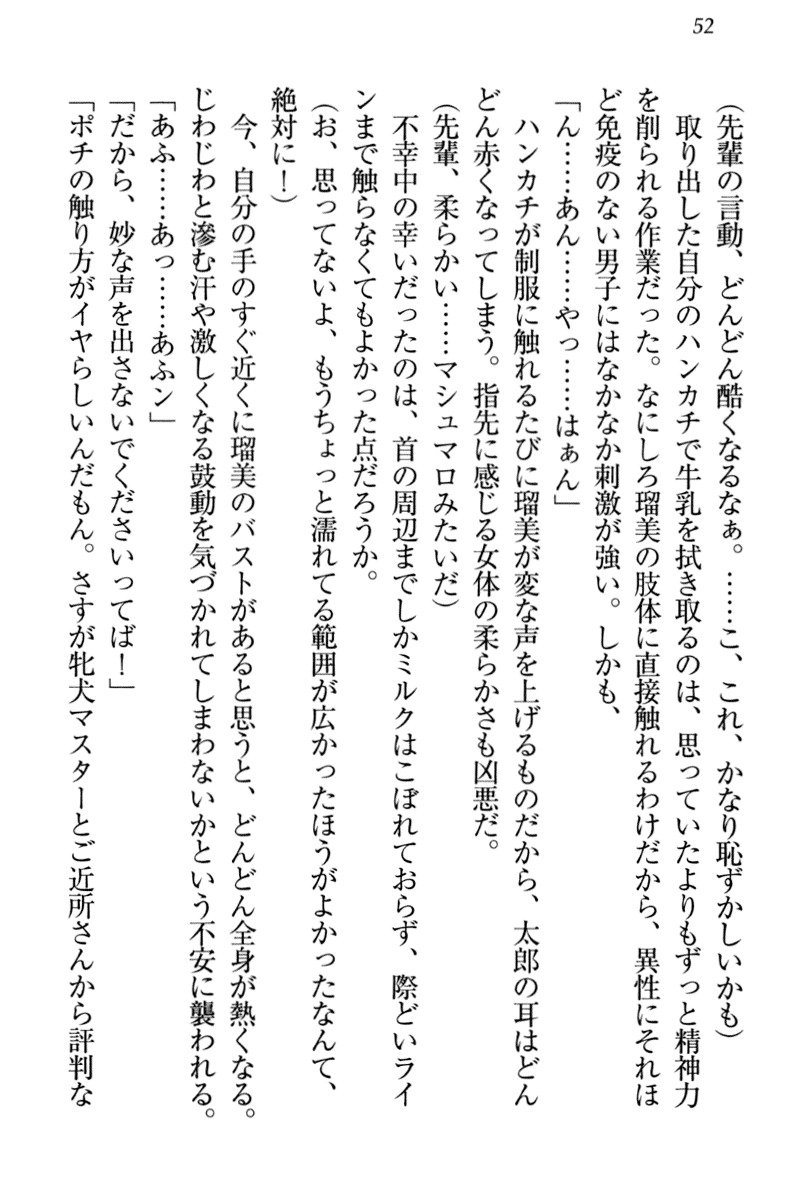 52
（先輩の言動、どんどん酷くなるなぁ。……こ、これ、かなり恥ずかしいかも）
　取り出した自分のハンカチで牛乳を拭き取るのは、思っていたよりもずっと精神力
を削られる作業だった。なにしろ瑠美の肢体に直接触れるわけだから、異性にそれほ
ど免疫のない男子にはなかなか刺激が強い。しかも、
「ん……あん……やっ……はぁん」
　ハンカチが制服に触れるたびに瑠美が変な声を上げるものだから、太郎の耳はどん
どん赤くなってしまう。指先に感じる女体の柔らかさも凶悪だ。
（先輩、柔らかい……マシュマロみたいだ）
　不幸中の幸いだったのは、首の周辺までしかミルクはこぼれておらず、際どいライ
ンまで触らなくてもよかった点だろうか。
（お、思ってないよ、もうちょっと濡れてる範囲が広かったほうがよかったなんて、
絶対に！）
　今、自分の手のすぐ近くに瑠美のバストがあると思うと、どんどん全身が熱くなる。
じわじわと滲む汗や激しくなる鼓動を気づかれてしまわないかという不安に襲われる。
「あふ……あっ……あふン」
「だから、妙な声を出さないでくださいってば！」
「ポチの触り方がイヤらしいんだもん。さすが牝犬マスターとご近所さんから評判な